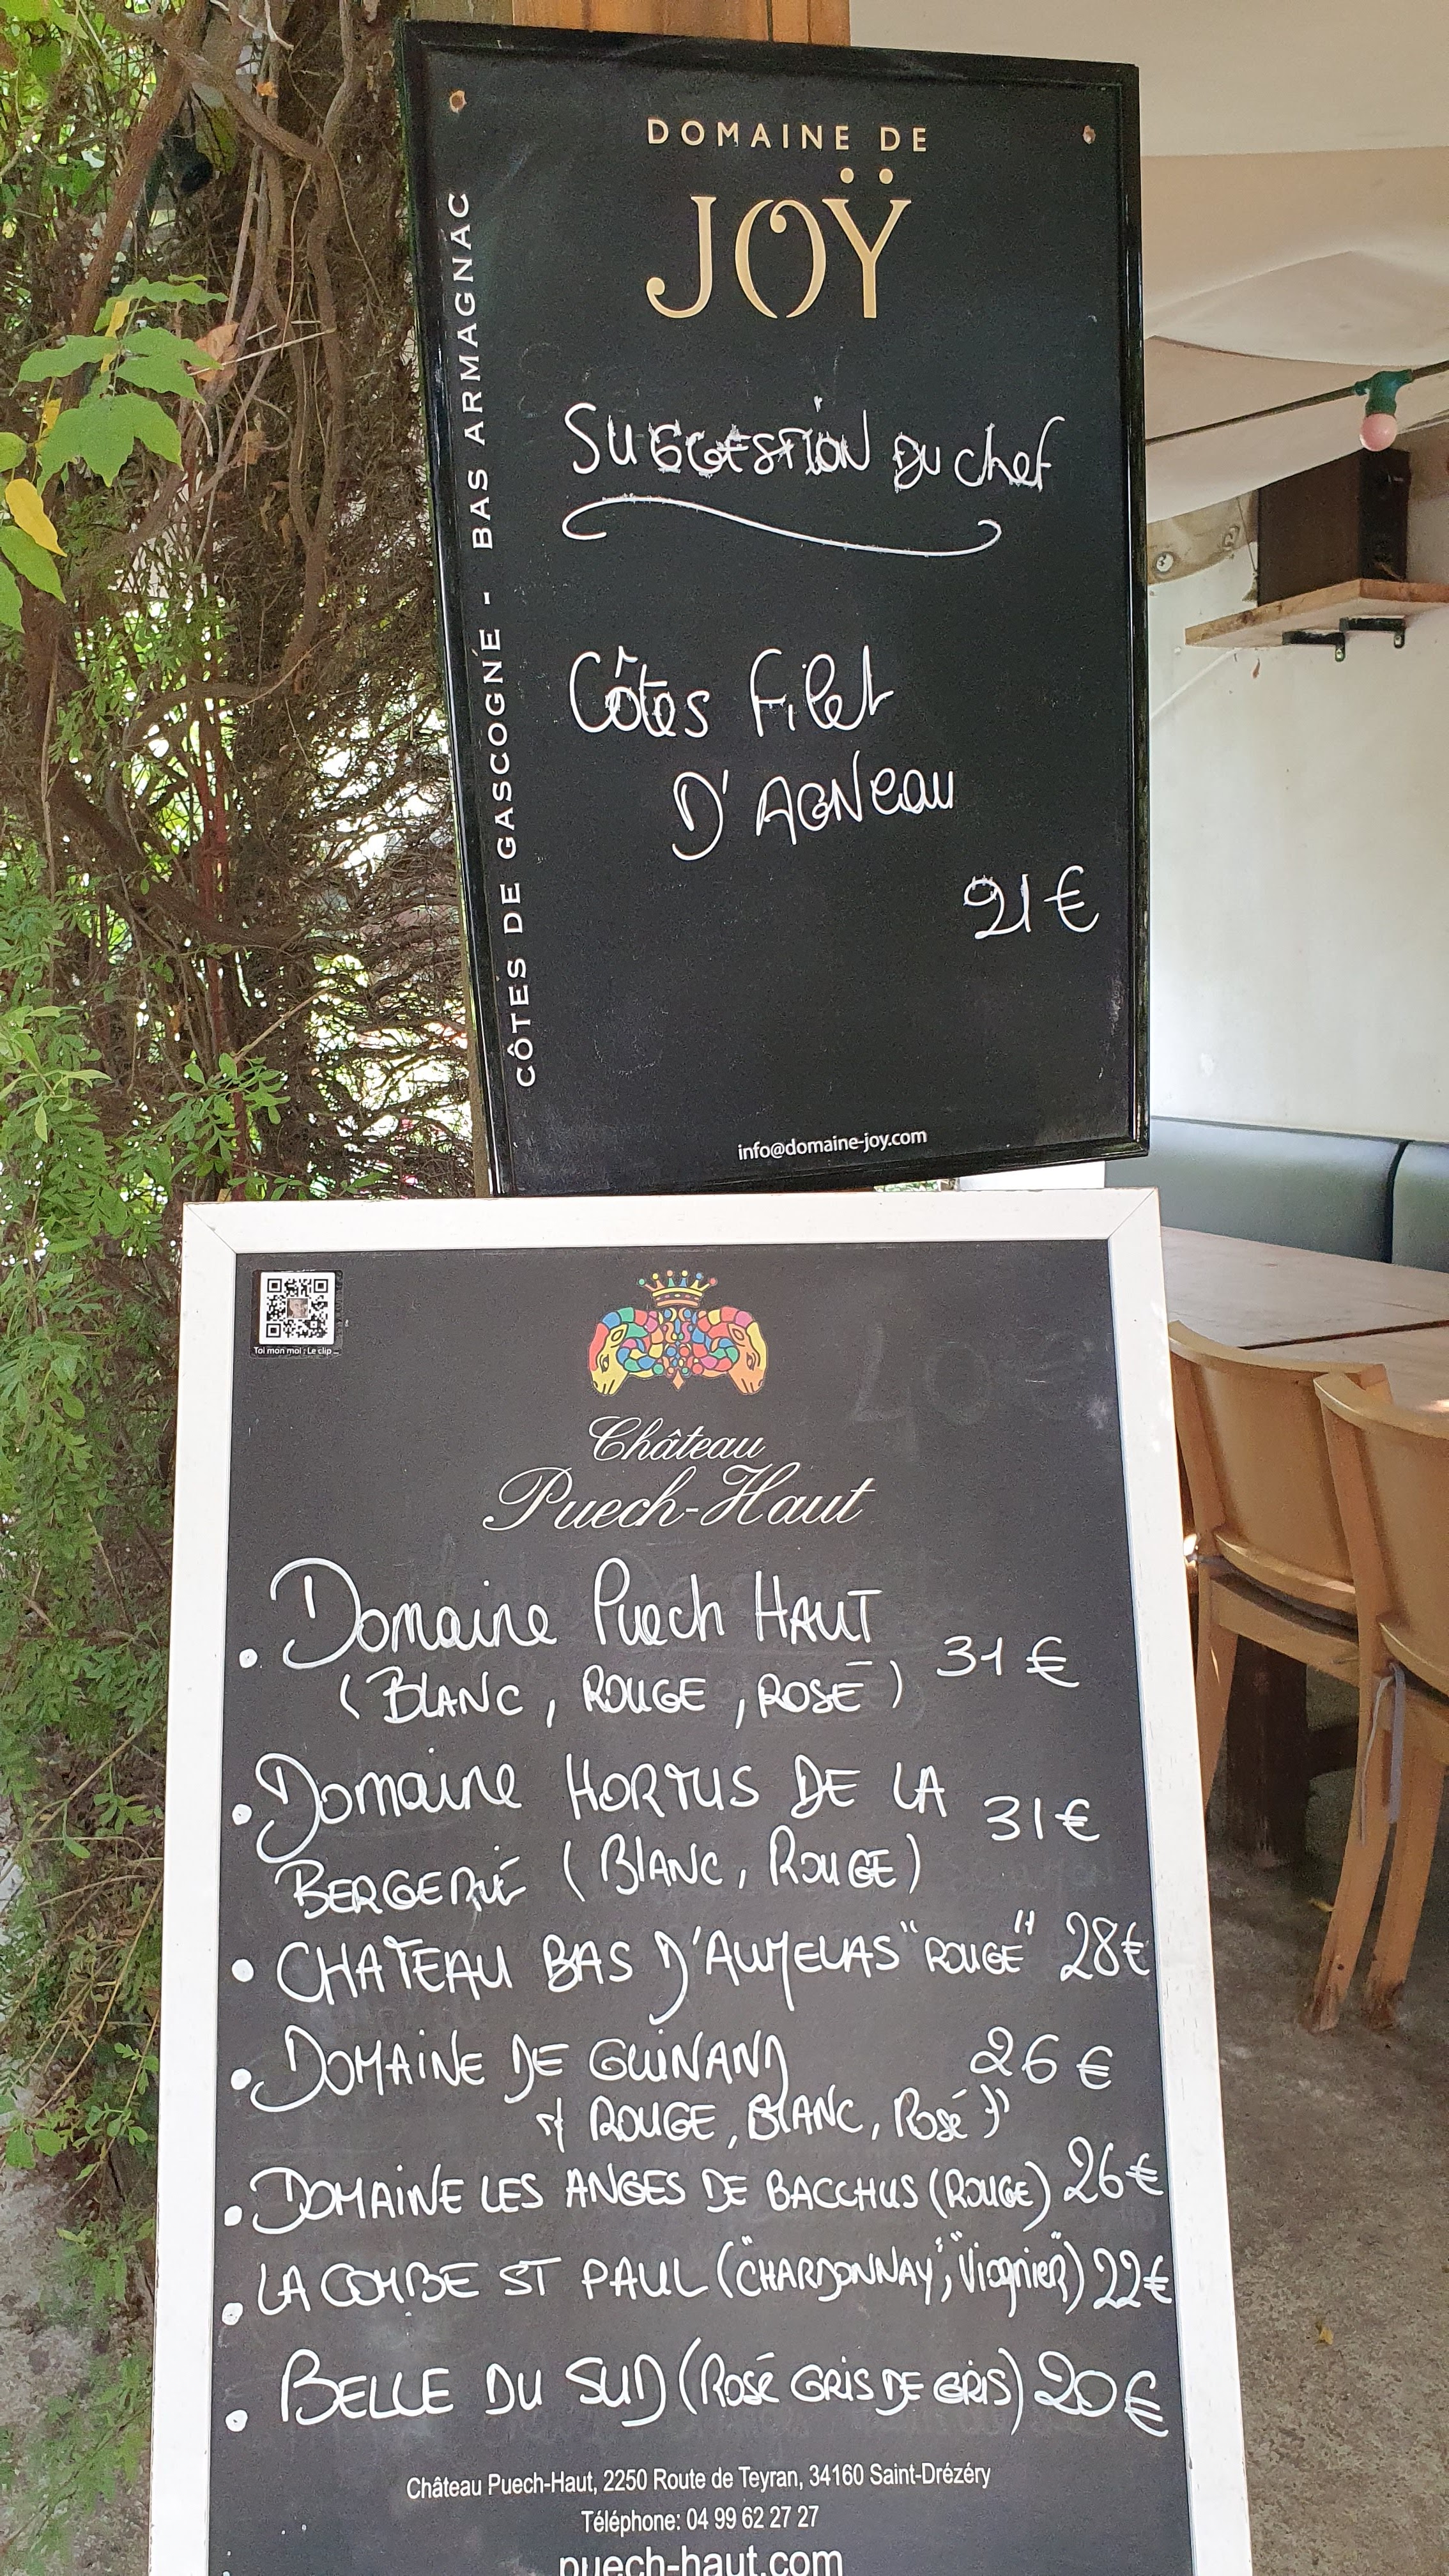 DOMAINE DE
JOŸ
CÔTES DE GASCOGNE - BAS ARMAGNAC
SUGGESTION DU chef
Côtes Filet
D'AGNeau
21€
info@domaine-joy.com
Toi mon moi : Le clip ...
40€
Château
Puech-Haut
• Domaine Puech HAUT 31€
(BLANC, ROUGE, ROSÉ)
• Domaine HORTUS DE LA 31€
BERGERIE (BlANC, ROUGE)
• CHATEAU BAS D'AUMELAS "ROUGE" 28€
• DOMAiNE DE GUiNAND 26€
"( ROUGE, BLANC, Rosé )"
• DOMAiNE LES ANGES DE BACCHUS (ROUGE) 26€
• LA COMBE ST PAUL ("CHARDONNAY", "Viognier") 22€
• BELLE DU SUD (ROSÉ GRiS DE GRiS) 20€
Château Puech-Haut, 2250 Route de Teyran, 34160 Saint-Drézéry
Téléphone: 04 99 62 27 27
puech-haut.com